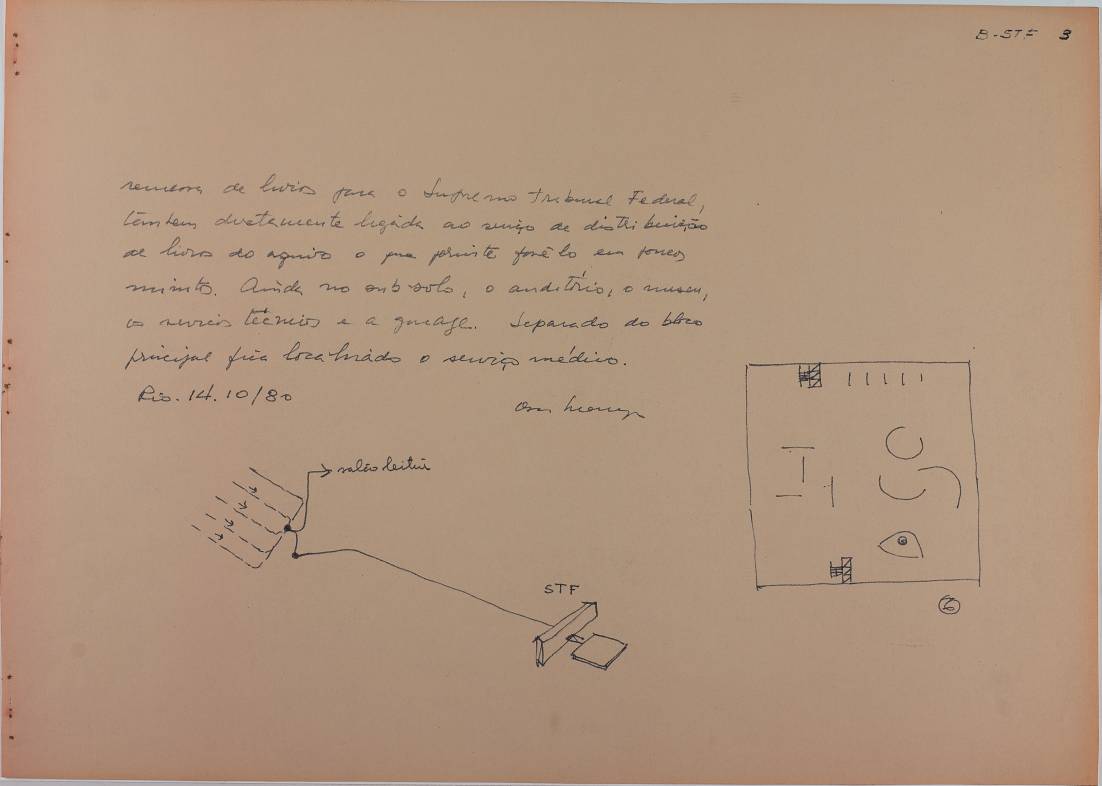 B-STF 3
remessa de livros para o Supremo Tribunal Federal,
também diretamente ligada ao serviço de distribuição
de livros do aquivo o que permite fazê-lo em poucos
minutos. Ainda no sub-solo, o auditório, o museu,
os serviços técnicos e a garage. Separado do bloco
principal fica localizado o serviço médico.
Rio. 14.10/80
salão leitura
STF
6